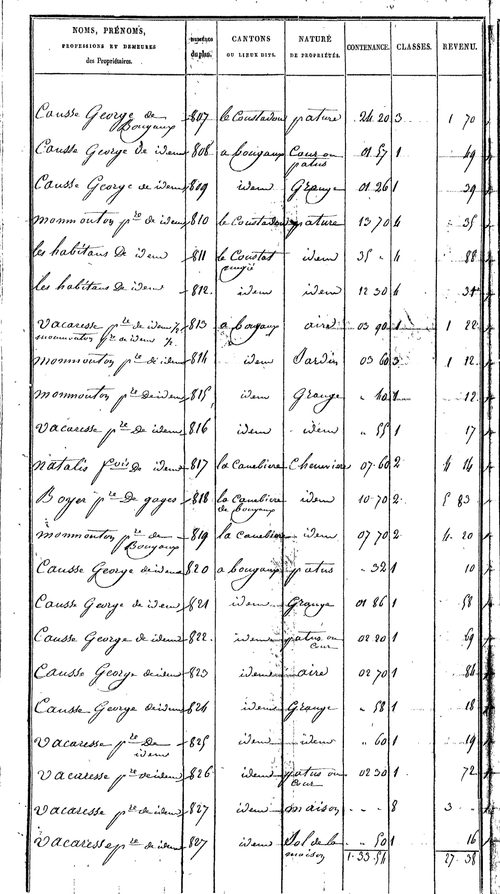 NOMS, PRÉNOMS,
PROFESSIONS ET DEMEURES
des Propriétaires.
NUMÉROS
du plan.
CANTONS
OU LIEUX DITS.
NATURE
DE PROPRIÉTÉS.
CONTENANCE.
CLASSES.
REVENU.
Causse George de Bougaux 807 le Coustadou pature 24 20 3 1 70
Causse George de idem 808 a bougaux Cour ou patus 01 57 1 49
Causse George de idem 809 idem Grange 01 26 1 39
monmouton pre de idem 810 le Coustadou pature 13 70 4 35
les habitans De idem 811 le Coustat idem 35 " 4 88
les habitans De idem 812 idem idem 12 30 4 31
Vacaresse pre de idem 1/2 813 a bougaux aire 03 90 1 1 22
monmouton pre de idem 1/2
monmouton pre de idem 814 idem Jardin 03 60 3 1 12
monmouton pre De idem 815 idem Grange " 40 1 12
Vacaresse pre De idem 816 idem idem " 55 1 17
natalis fcois De idem 817 la canebiere Cheneviere 07 60 2 4 14
Boyer pre De gages 818 la canebiere de bougaux idem 10 70 2 5 83
monmouton pre de Bougaux 819 la canebiere idem 07 70 2 4 20
Causse George de idem 820 a bougaux patus " 32 1 10
Causse George de idem 821 idem Grange 01 86 1 58
Causse George de idem 822 idem patus ou Cour 02 20 1 69
Causse George de idem 823 idem aire 02 70 1 84
Causse George de idem 824 idem Grange " 58 1 18
Vacaresse pre De idem 825 idem idem " 60 1 19
Vacaresse pre de idem 826 idem patus ou Cour 02 30 1 72
Vacaresse pre de idem 827 idem maison " " 8 3 "
Vacaresse pre de idem 827 idem Sol de la maison " 50 1 16
1. 33. 54 27. 38